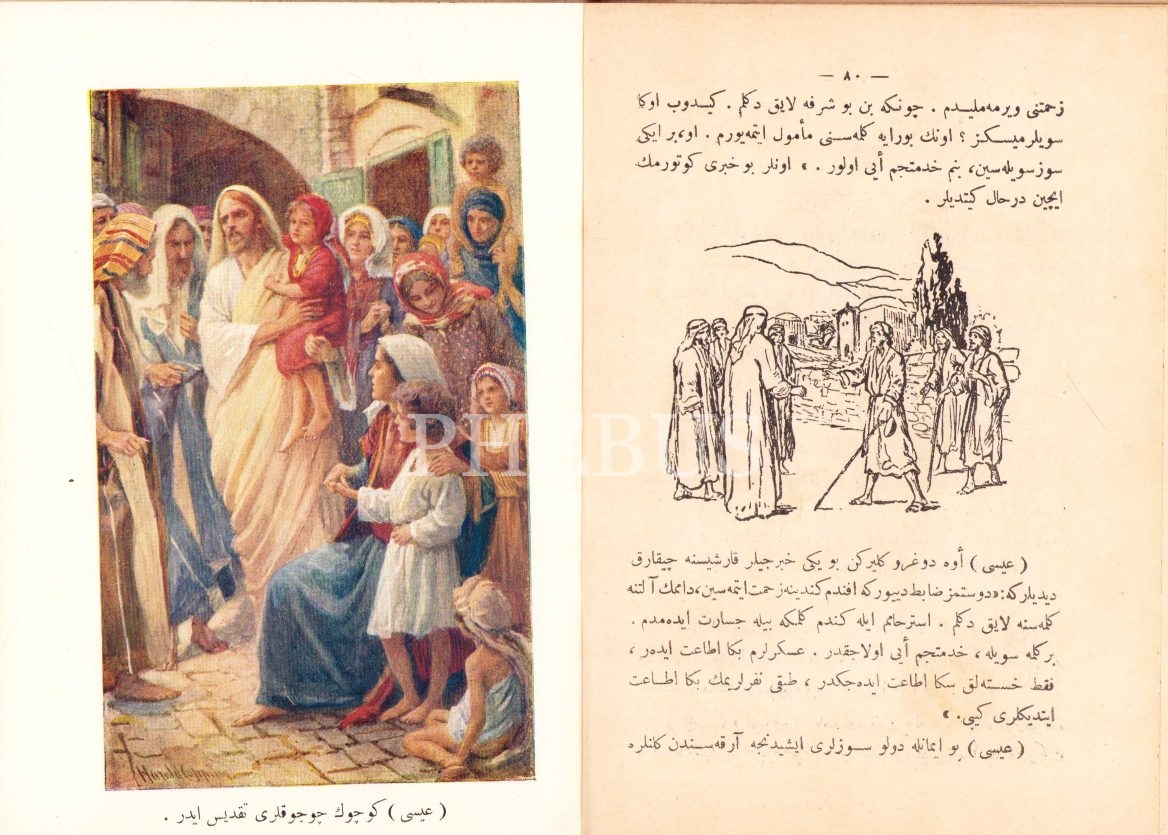 — ٨٠ —
زحمتنی ویرمه‌ملیدم . چونكه بن بو شرفه لایق دكلم . كیدوب اوكا
سویلرمیسكز ؟ اونك بورایه كلمه‌سنی مأمول ایتمه‌یورم . او، بر ایكی
سوز سویله‌سین، بنم خدمتجم أیی اولور . » اونلر بو خبری كوتورمك
ایچین درحال كیتدیلر .
( عیسی ) أوه دوغرو كلیركن بو یكی خبرجیلر قارشیسنه چیقارق
دیدیلركه: «دوستمز ضابط دییوركه افندم كندینه زحمت ایتمه‌سین، داممك آلتنه
كلمه‌سنه لایق دكلم . استرحام ایله كندم كلمكه بیله جسارت ایده‌مدم .
بركلمه سویله ، خدمتجم أیی اولاجقدر . عسكرلرم بكا اطاعت ایده‌ر ،
فقط خسته‌لق سكا اطاعت ایده‌جكدر ، طبقی نفرلریمك بكا اطاعت
ایتدیكلری كبی. »
( عیسی ) بو ایمانله دولو سوزلری ایشیدنجه آرقه‌سندن كلنلره
( عیسی ) كوچوك چوجوقلری تقدیس ایدر .
PHEBUS